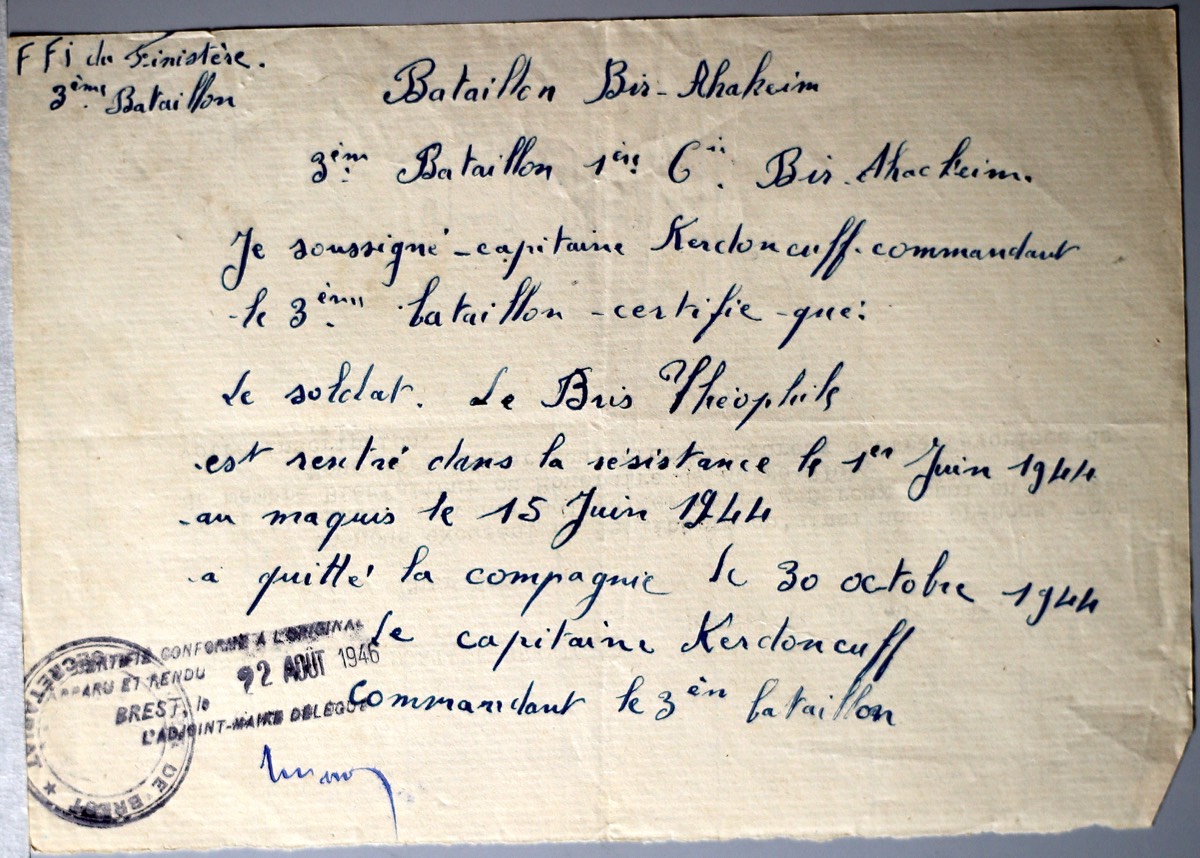 FFi du Finistère.
3ème Bataillon
Bataillon Bir-Ahakeim
3ème Bataillon 1ère Cie. Bir. Ahackeim.
Je soussigné - capitaine Kerdoncuff. commandant
le 3ème bataillon - certifie - que:
Le soldat. Le Bris Théophile
est rentré dans la résistance le 1er Juin 1944
au maquis le 15 Juin 1944
a quitté la compagnie le 30 octobre 1944
Le capitaine Kerdoncuff
Commandant le 3èm bataillon
CERTIFIÉ CONFORME A L'ORIGINAL
PARU ET RENDU
BREST, le 22 AOÛT 1946
L'ADJOINT-MAIRE DÉLÉGUÉ
SECRETARIAT
DE BREST